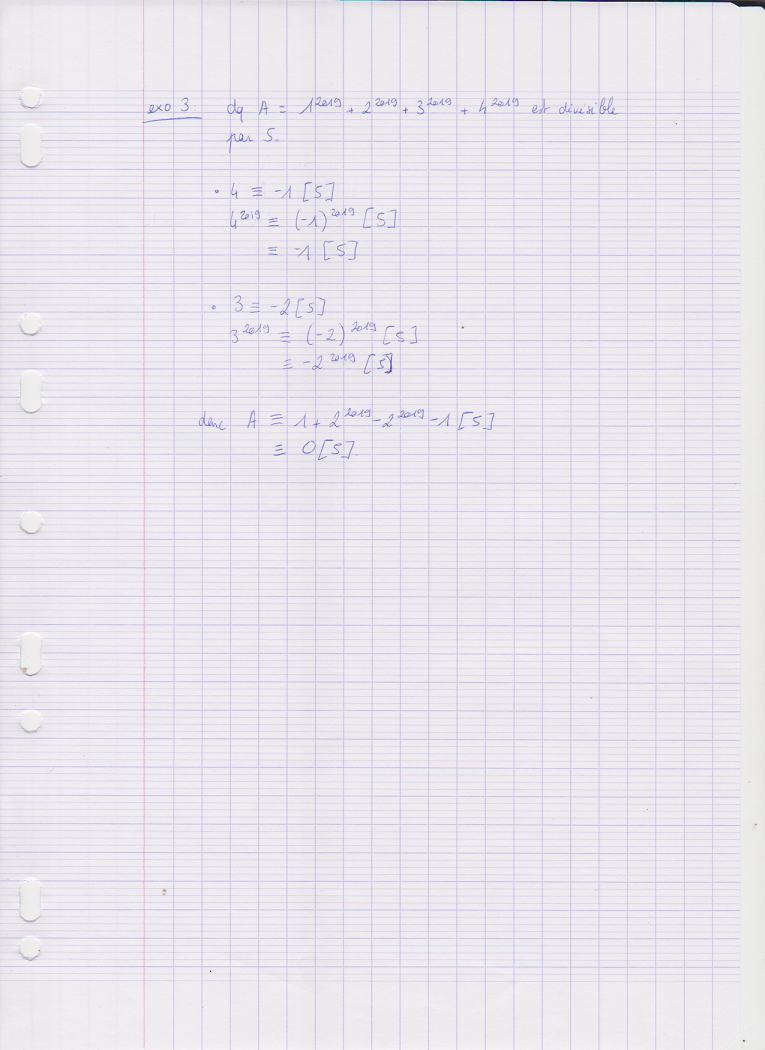 exo 3. dq A = 1^2019 + 2^2019 + 3^2019 + 4^2019 est divisible
par 5.
• 4 ≡ -1 [5]
4^2019 ≡ (-1)^2019 [5]
≡ -1 [5]
• 3 ≡ -2 [5]
3^2019 ≡ (-2)^2019 [5]
≡ -2^2019 [5]
donc A ≡ 1 + 2^2019 - 2^2019 - 1 [5]
≡ 0 [5].